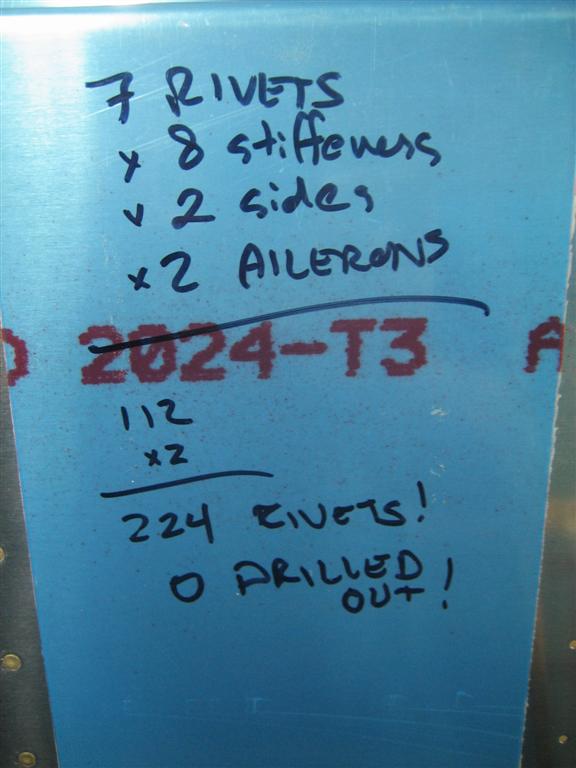 7 RIVETS
x 8 stiffeners
x 2 sides
x2 AILERONS
D 2024-T3 A
112
x2
224 RIVETS!
0 DRILLED
OUT!